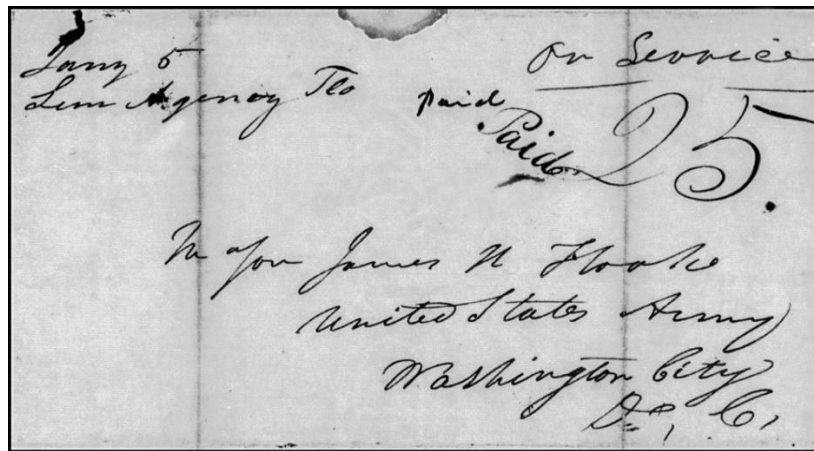 Jany 5
Sem Agency Flo
On Service
paid
Paid 25.
Major James H Hooke
United States Army
Washington City
D. C.